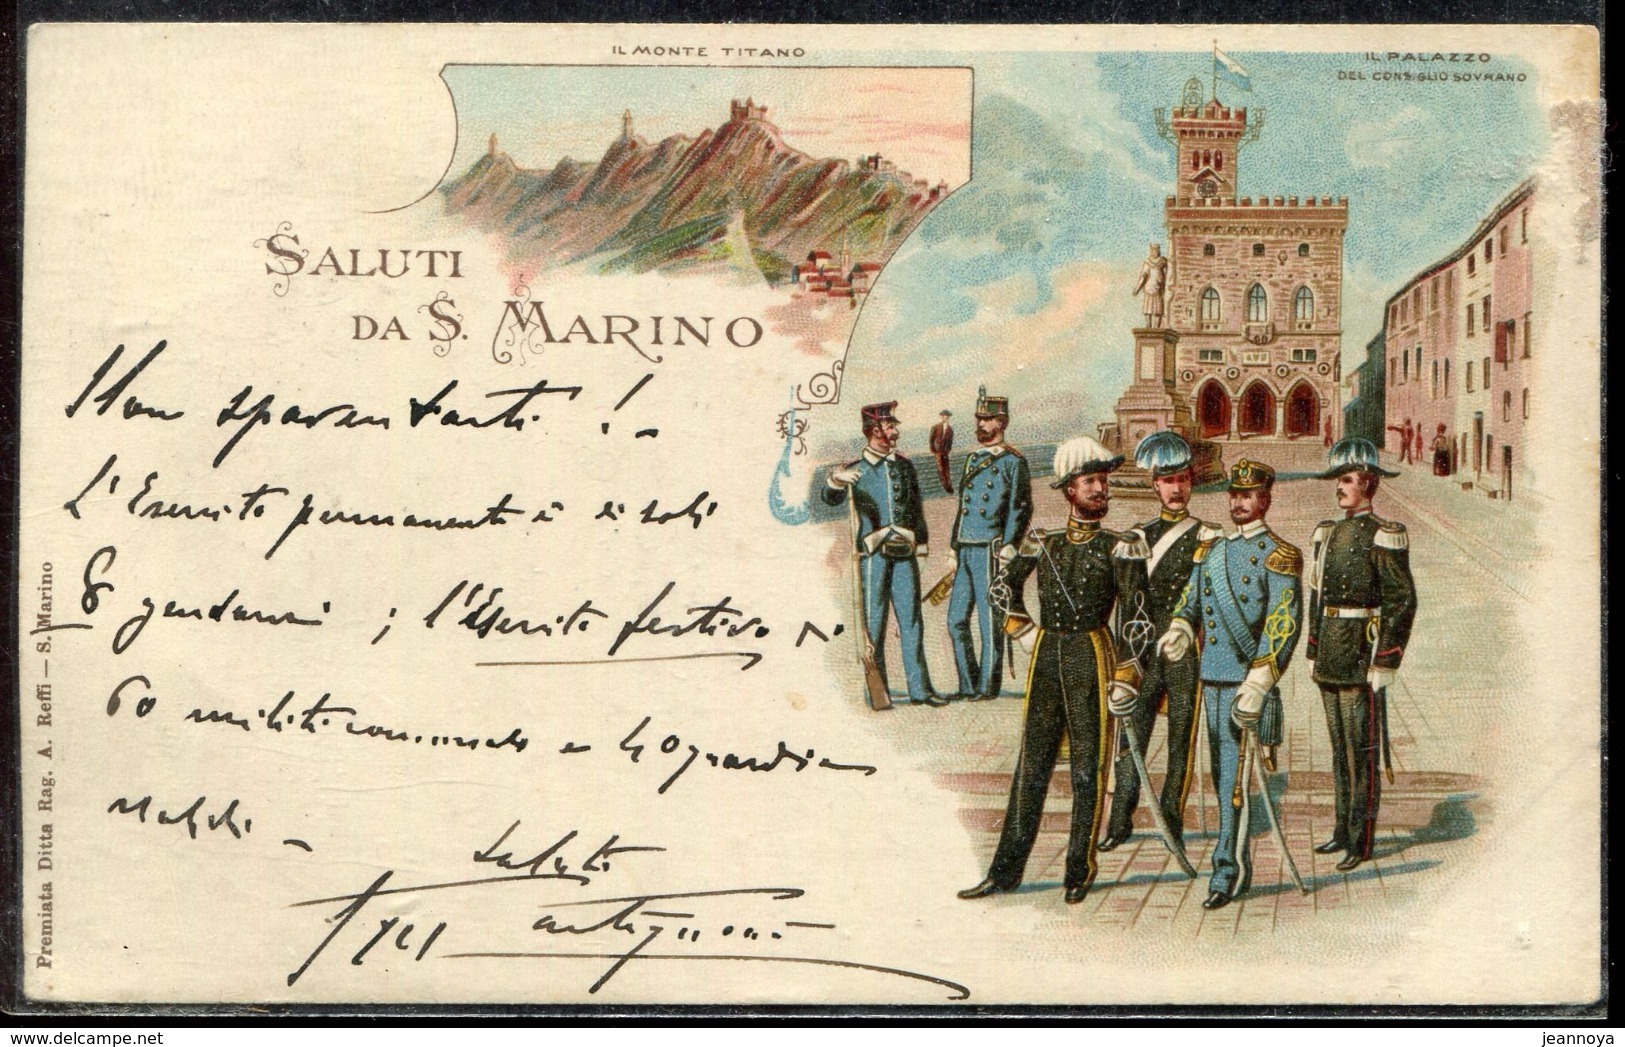 IL MONTE TITANO
IL PALAZZO
DEL CONSIGLIO SOVRANO
SALUTI
DA S. MARINO
Non spaventarti ! -
L'Esercito permanente è di soli
8 gendarmi ; l'Esercito festivo di
60 militi comunali e 40 guardie
nobili -
Saluti
Premiata Ditta Rag. A. Reffi — S. Marino
www.delcampe.net
jeannoya